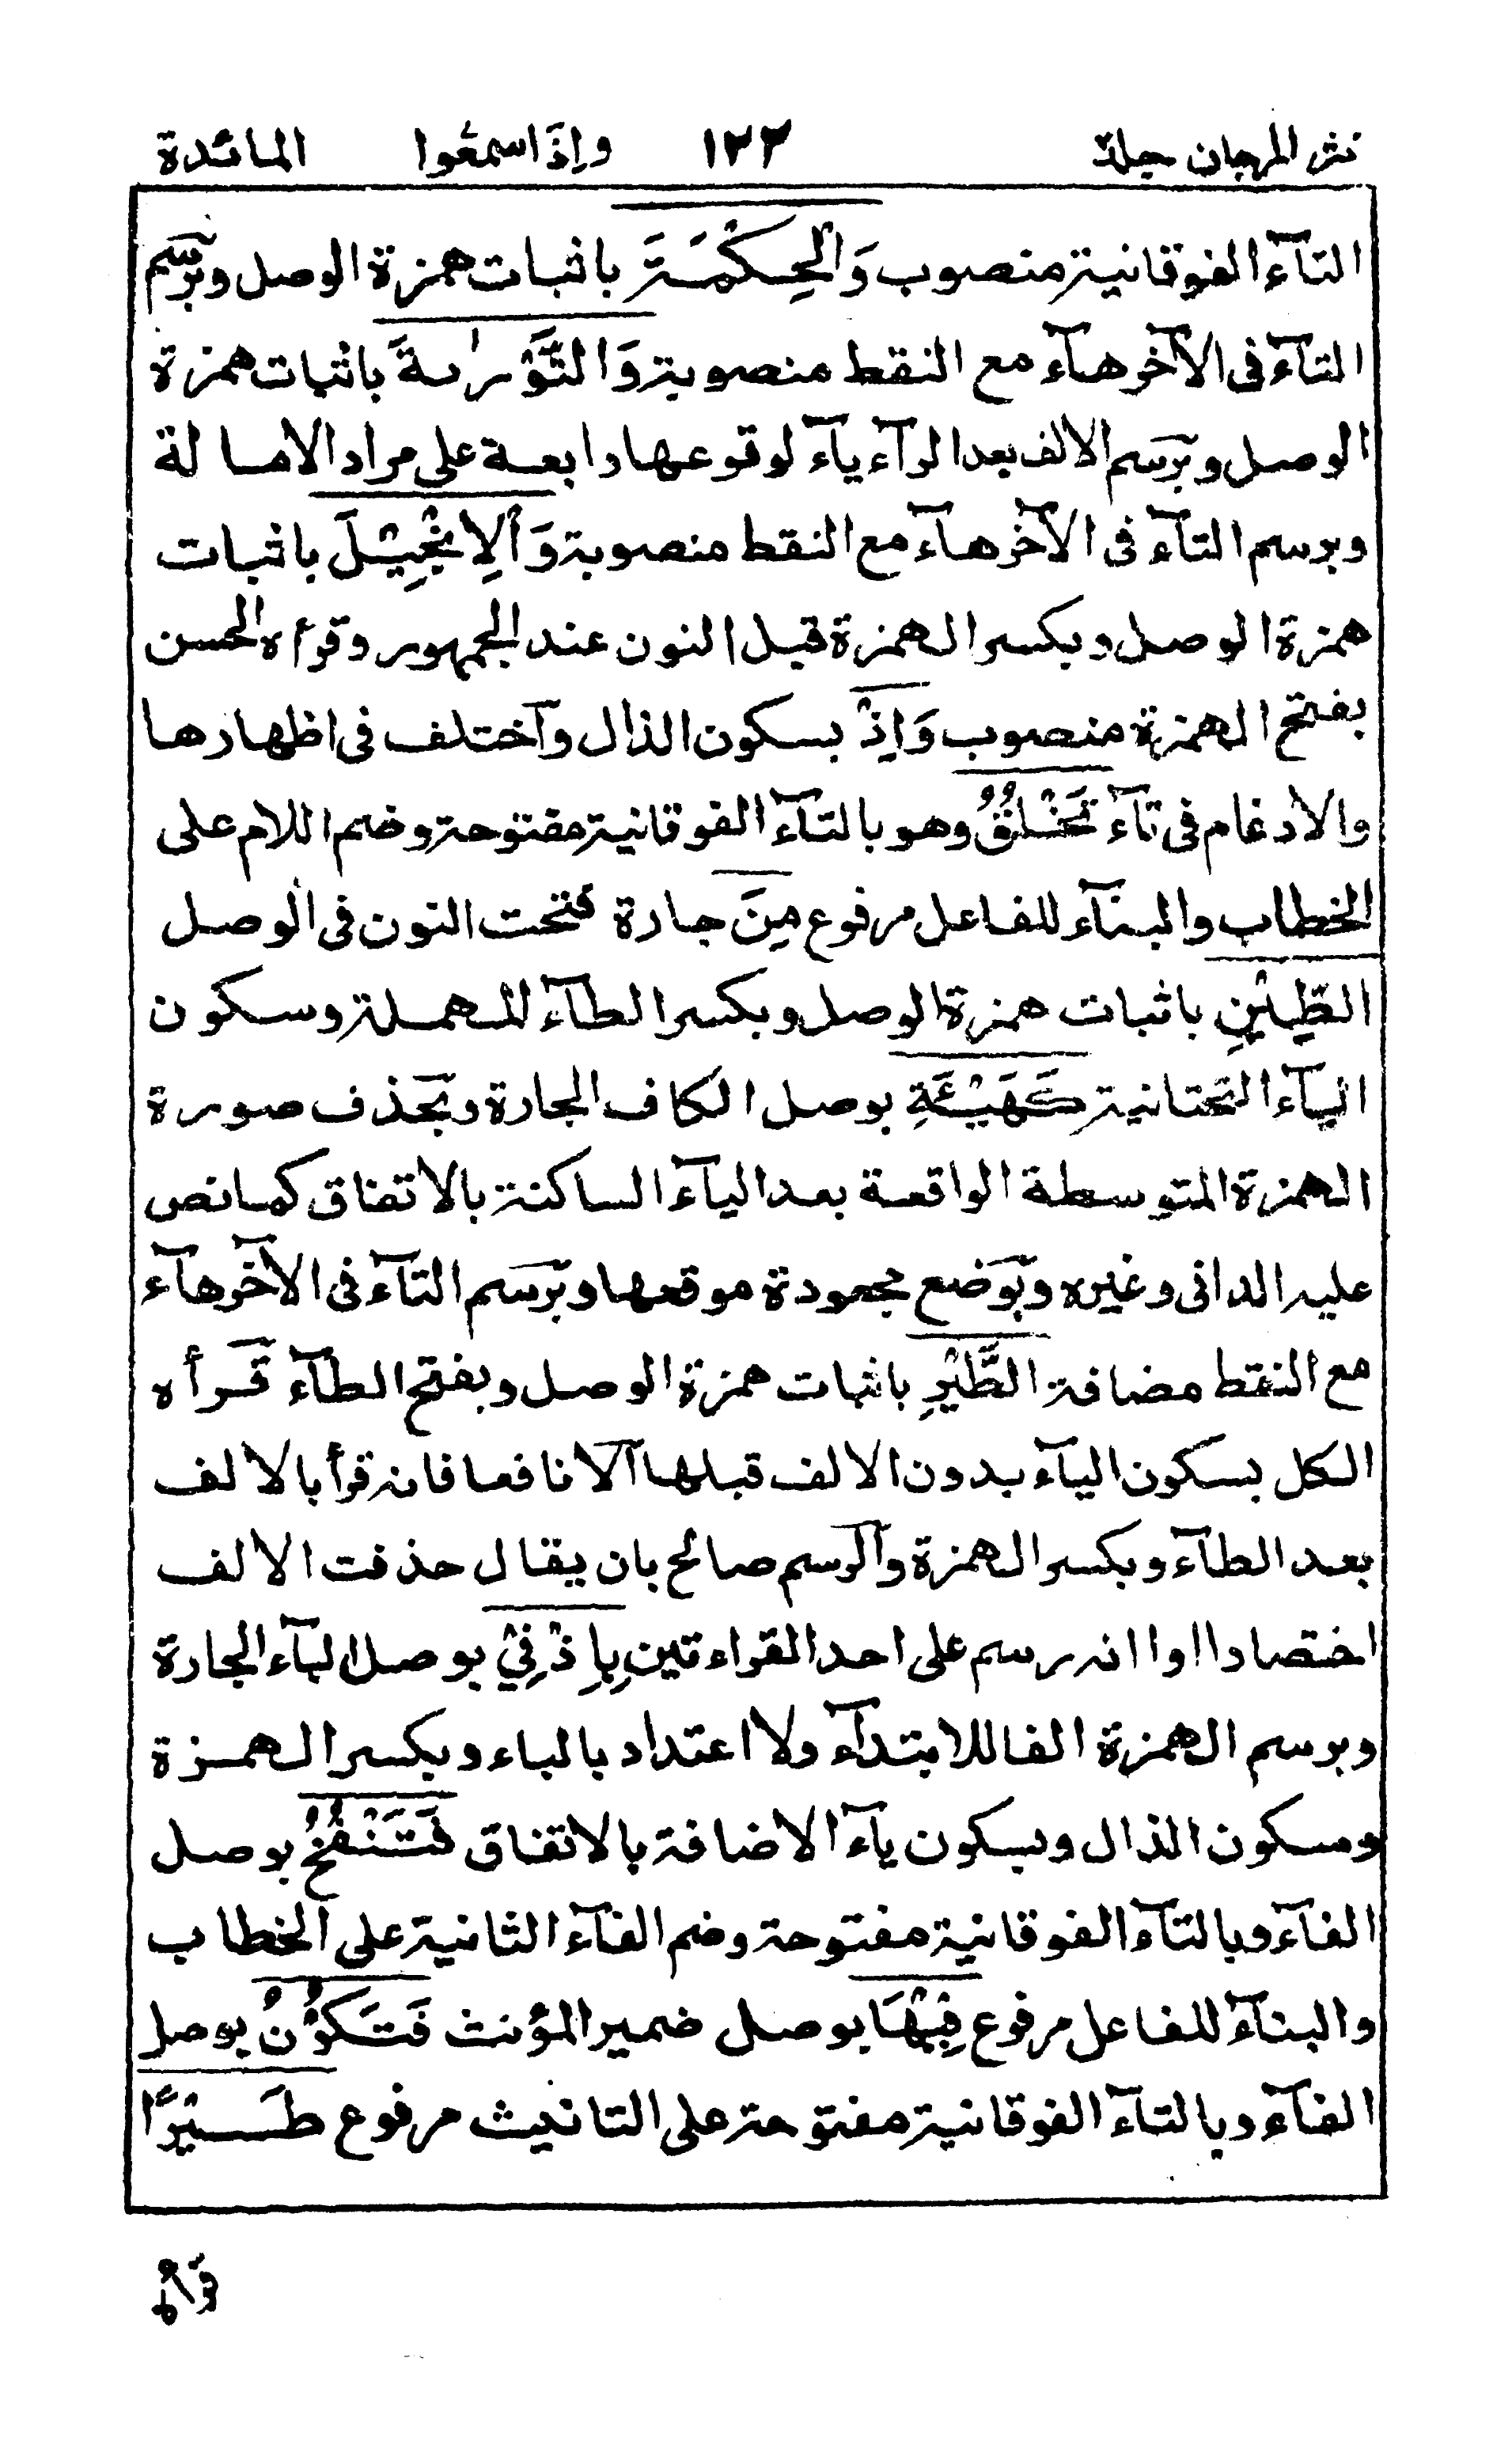 نثر المرجان جلد ١٢٢ واذا سمعوا المائدة
التآء الفوقانية منصوب وَالْحِكْمَةَ باثبات همزة الوصل وبرسم
التآء فى الآخر هآء مع النقط منصوبة وَالتَّوْرٰىةَ باثبات همزة
الوصل وبرسم الالف بعد الرآء يآء لوقوعها رابعة على مراد الامالة
وبرسم التآء فى الآخر هآء مع النقط منصوبة وَالْاِنْجِيْلَ باثبات
همزة الوصل وبكسر الهمزة قبل النون عند الجمهور وقرأه الحسن
بفتح الهمزة منصوب وَاِذْ بسكون الذال واختلف فى اظهارها
والادغام فى تآء تَخْلُقُ وهو بالتآء الفوقانية مفتوحة وضم اللام على
الخطاب والبنآء للفاعل مرفوع مِنَ جارة فتحت النون فى الوصل
الطِّيْنِ باثبات همزة الوصل وبكسر الطآء المهملة وسكون
اليآء التحتانية كَهَيْـَٔةِ بوصل الكاف الجارة وبحذف صورة
الهمزة المتوسطة الواقعة بعد اليآء الساكنة بالاتفاق كما نص
عليه الدانى وغيره وبوضع مجعودة موقعها وبرسم التآء فى الآخر هآء
مع النقط مضافة الطَّيْرِ باثبات همزة الوصل وبفتح الطآء قرأه
الكل بسكون اليآء بدون الالف قبلها الا نافعا فانه قرأ بالالف
بعد الطآء وبكسر الهمزة والرسم صالح بان يقال حذفت الالف
اختصارا او انه رسم على احد القراءتين بِاِذْنِيْ بوصل البآء الجارة
وبرسم الهمزة الفا للابتدآء ولا اعتداد بالباء وبكسر الهمزة
وسكون الذال وبسكون يآء الاضافة بالاتفاق فَتَنْفُخُ بوصل
الفآء وبالتآء الفوقانية مفتوحة وضم الفآء الثانية على الخطاب
والبنآء للفاعل مرفوع فِيْهَا بوصل ضمير المؤنث فَتَكُوْنُ بوصل
الفآء وبالتآء الفوقانية مفتوحة على التانيث مرفوع طَيْرًا
قرأه